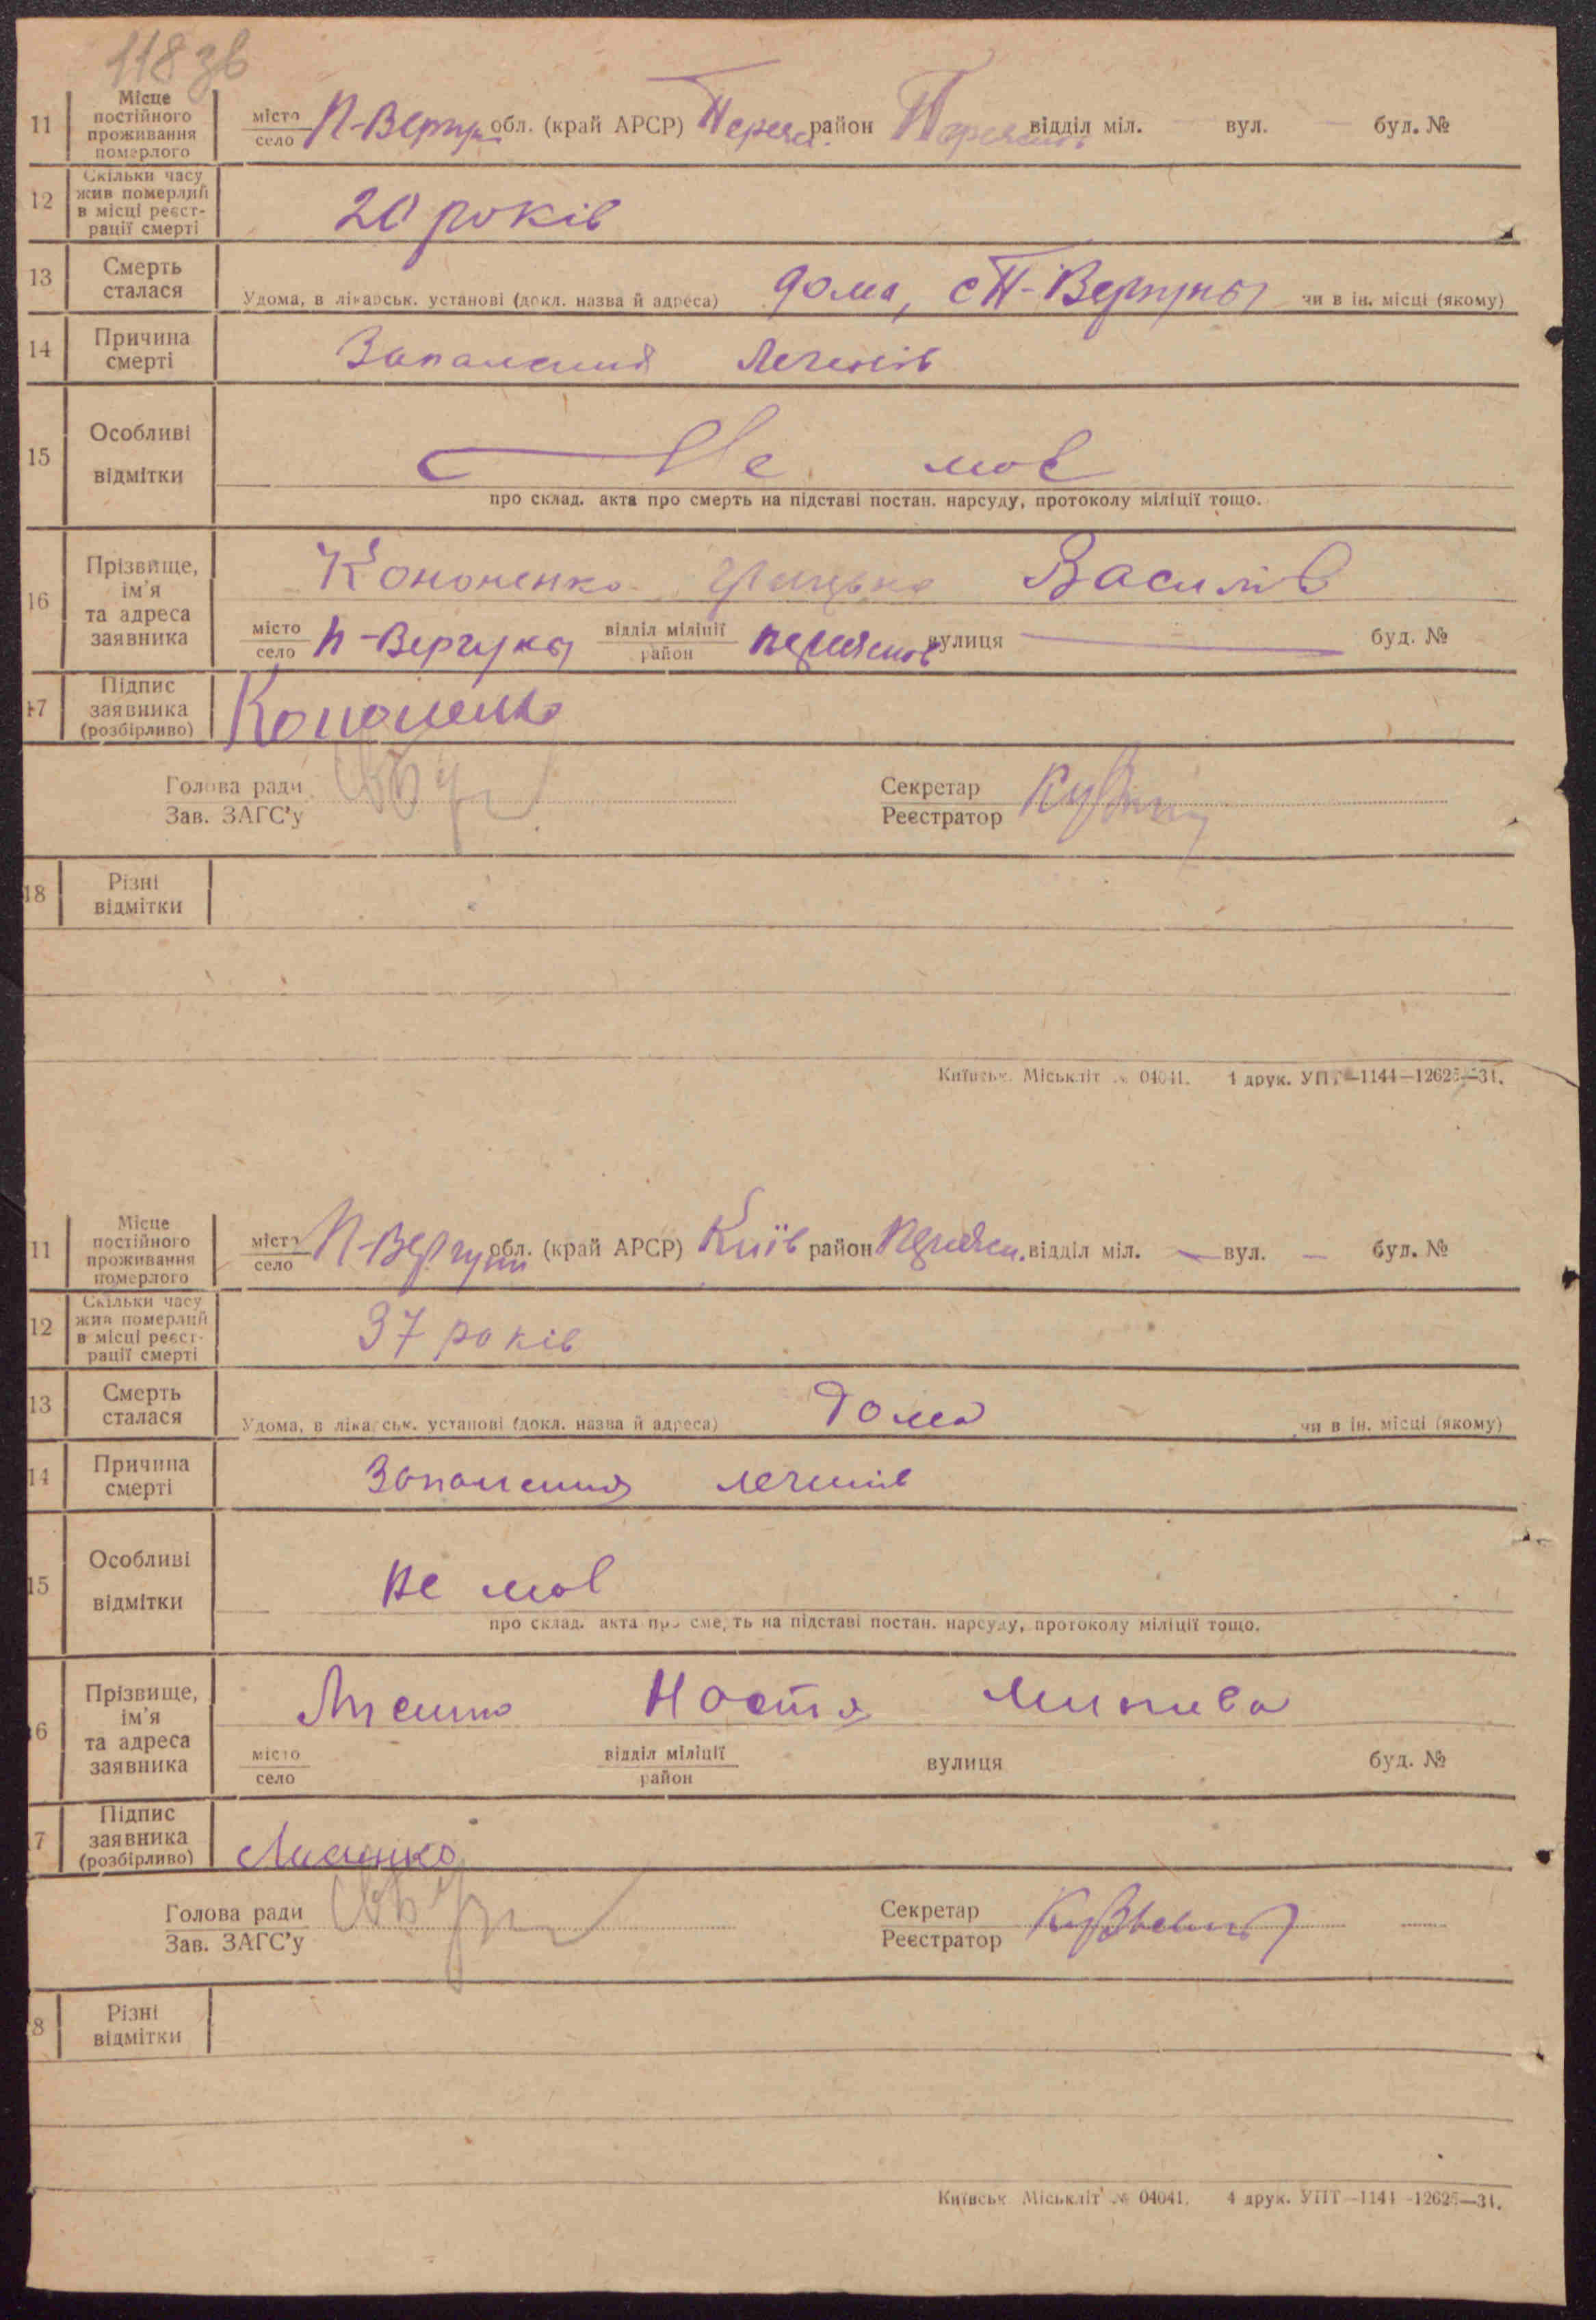 118 зв
11 Місце постійного проживання померлого місто село П-Вергун обл. (край АРСР) Переяс. район відділ міл. — вул. — буд. №
12 Скільки часу жив померлий в місці реєстрації смерті 20 років
13 Смерть сталася Удома, в лікарськ. установі (докл. назва й адреса) дома, с П-Вергуны чи в ін. місці (якому)
14 Причина смерті Запаления легенів
15 Особливі відмітки Не має
про склад. акта про смерть на підставі постан. нарсуду, протоколу міліції тощо.
16 Прізвище, ім'я та адреса заявника Кононенко Грицько Василів
місто село П-Вергуны відділ міліції район переяслов вулиця — буд. №
17 Підпис заявника (розбірливо) Кононенко
Голова ради Зав. ЗАГС'у Секретар Реєстратор
18 Різні відмітки
Київськ. Міськліт № 04041. 4 друк. УПТ—1144—12625—31.
11 Місце постійного проживання померлого місто село П-Вергуни обл. (край АРСР) Київ район Переяс. відділ міл. — вул. — буд. №
12 Скільки часу жив померлий в місці реєстрації смерті 37 років
13 Смерть сталася Удома, в лікарськ. установі (докл. назва й адреса) Дома чи в ін. місці (якому)
14 Причина смерті Запаления легенів
15 Особливі відмітки не має
про склад. акта про смерть на підставі постан. нарсуду, протоколу міліції тощо.
16 Прізвище, ім'я та адреса заявника Настя
місто село відділ міліції район вулиця буд. №
17 Підпис заявника (розбірливо)
Голова ради Зав. ЗАГС'у Секретар Реєстратор
18 Різні відмітки
Київськ. Міськліт № 04041. 4 друк. УПТ—1144—12625—31.